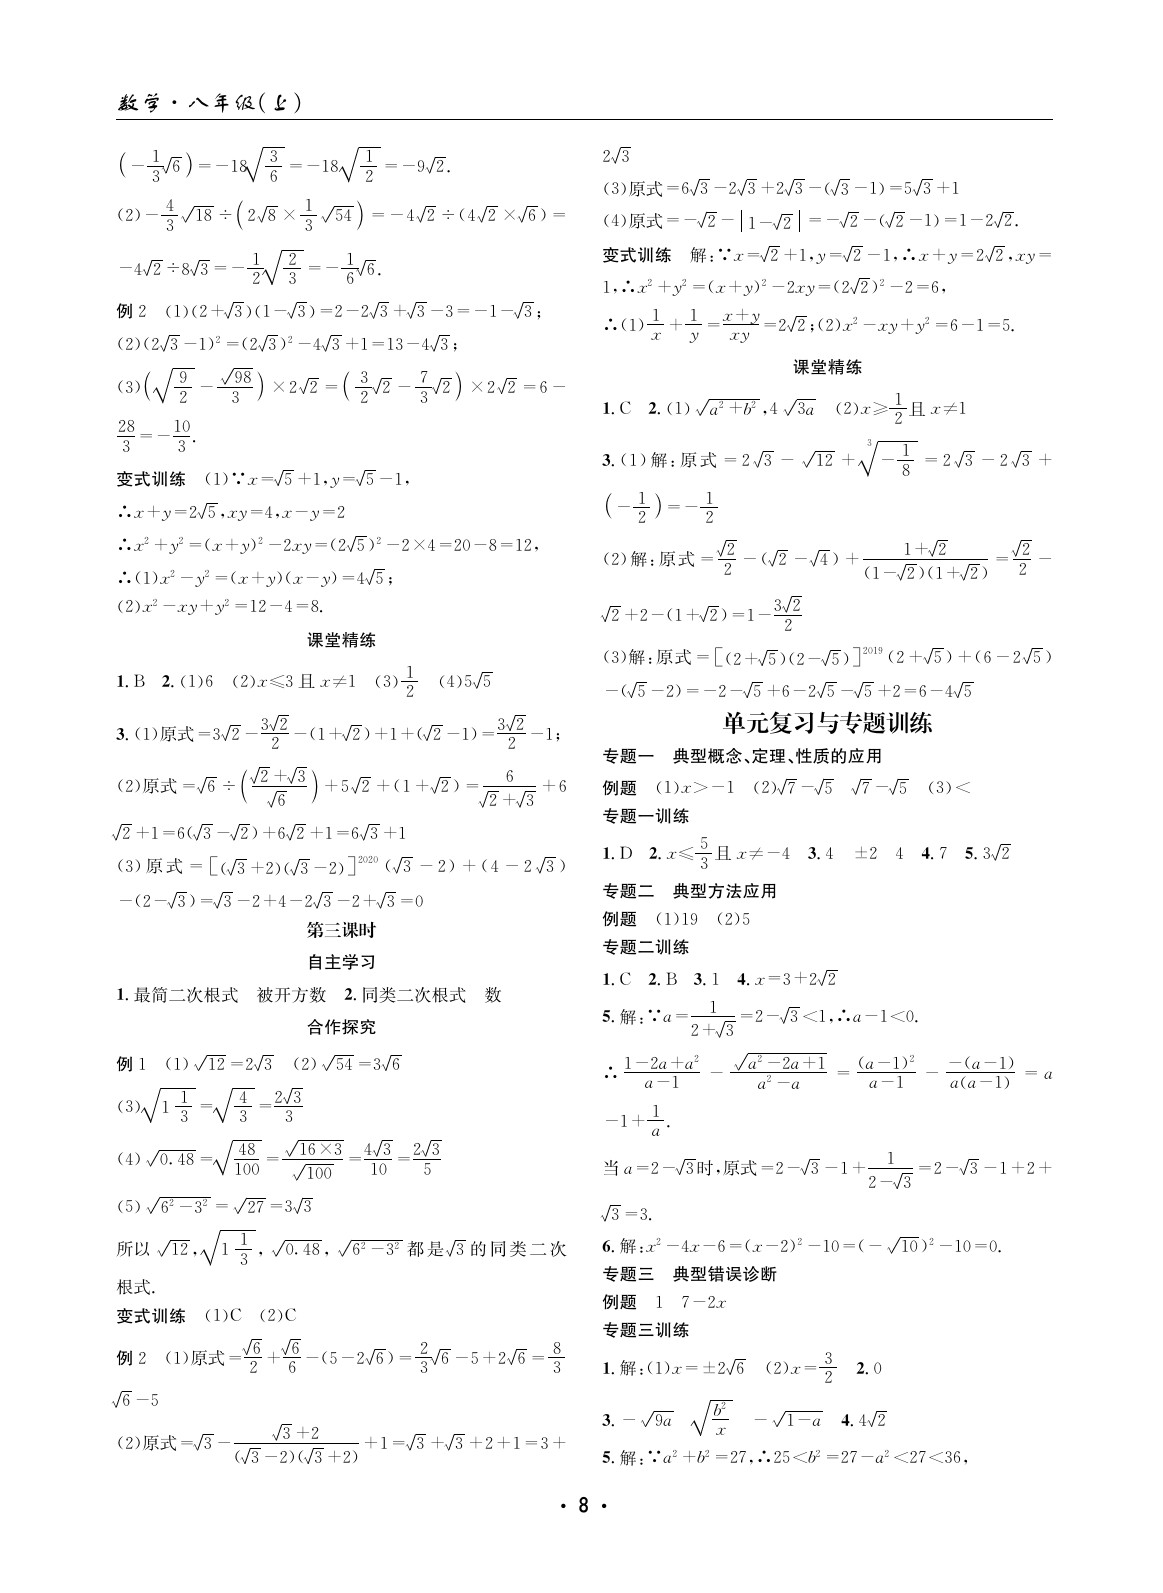 数学·八年级(上)
(-1/3√6)=-18√(3/6)=-18√(1/2)=-9√2.
(2)-4/3√18÷(2√8×1/3√54)=-4√2÷(4√2×√6)=
-4√2÷8√3=-1/2√(2/3)=-1/6√6.
例2 (1)(2+√3)(1-√3)=2-2√3+√3-3=-1-√3;
(2)(2√3-1)²=(2√3)²-4√3+1=13-4√3;
(3)(√(9/2)-√98/3)×2√2=(3/2√2-7/3√2)×2√2=6-
28/3=-10/3.
变式训练 (1)∵x=√5+1,y=√5-1,
∴x+y=2√5,xy=4,x-y=2
∴x²+y²=(x+y)²-2xy=(2√5)²-2×4=20-8=12,
∴(1)x²-y²=(x+y)(x-y)=4√5;
(2)x²-xy+y²=12-4=8.
课堂精练
1. B 2. (1)6 (2)x≤3且x≠1 (3)1/2 (4)5√5
3. (1)原式=3√2-3√2/2-(1+√2)+1+(√2-1)=3√2/2-1;
(2)原式=√6÷((√2+√3)/√6)+5√2+(1+√2)=6/(√2+√3)+6
√2+1=6(√3-√2)+6√2+1=6√3+1
(3)原式=[(√3+2)(√3-2)]²⁰²⁰(√3-2)+(4-2√3)
-(2-√3)=√3-2+4-2√3-2+√3=0
第三课时
自主学习
1. 最简二次根式 被开方数 2. 同类二次根式 数
合作探究
例1 (1)√12=2√3 (2)√54=3√6
(3)√(1 1/3)=√(4/3)=2√3/3
(4)√0.48=√(48/100)=√(16×3)/√100=4√3/10=2√3/5
(5)√(6²-3²)=√27=3√3
所以√12,√(1 1/3),√0.48,√(6²-3²)都是√3的同类二次
根式.
变式训练 (1)C (2)C
例2 (1)原式=√6/2+√6/6-(5-2√6)=2/3√6-5+2√6=8/3
√6-5
(2)原式=√3-(√3+2)/((√3-2)(√3+2))+1=√3+√3+2+1=3+
2√3
(3)原式=6√3-2√3+2√3-(√3-1)=5√3+1
(4)原式=-√2-|1-√2|=-√2-(√2-1)=1-2√2.
变式训练 解:∵x=√2+1,y=√2-1,∴x+y=2√2,xy=
1,∴x²+y²=(x+y)²-2xy=(2√2)²-2=6,
∴(1)1/x+1/y=(x+y)/xy=2√2;(2)x²-xy+y²=6-1=5.
课堂精练
1. C 2. (1)√(a²+b²),4√(3a) (2)x≥1/2且x≠1
3. (1)解:原式=2√3-√12+∛(-1/8)=2√3-2√3+
(-1/2)=-1/2
(2)解:原式=√2/2-(√2-√4)+(1+√2)/((1-√2)(1+√2))=√2/2-
√2+2-(1+√2)=1-3√2/2
(3)解:原式=[(2+√5)(2-√5)]²⁰¹⁹(2+√5)+(6-2√5)
-(√5-2)=-2-√5+6-2√5-√5+2=6-4√5
单元复习与专题训练
专题一 典型概念、定理、性质的应用
例题 (1)x>-1 (2)√7-√5 √7-√5 (3)<
专题一训练
1. D 2. x≤5/3且x≠-4 3. 4 ±2 4 4. 7 5. 3√2
专题二 典型方法应用
例题 (1)19 (2)5
专题二训练
1. C 2. B 3. 1 4. x=3+2√2
5. 解:∵a=1/(2+√3)=2-√3<1,∴a-1<0.
∴(1-2a+a²)/(a-1)-√(a²-2a+1)/(a²-a)=(a-1)²/(a-1)--(a-1)/(a(a-1))=a
-1+1/a.
当a=2-√3时,原式=2-√3-1+1/(2-√3)=2-√3-1+2+
√3=3.
6. 解:x²-4x-6=(x-2)²-10=(-√10)²-10=0.
专题三 典型错误诊断
例题 1 7-2x
专题三训练
1. 解:(1)x=±2√6 (2)x=3/2 2. 0
3. -√(9a) √(b²/x) -√(1-a) 4. 4√2
5. 解:∵a²+b²=27,∴25<b²=27-a²<27<36,
· 8 ·